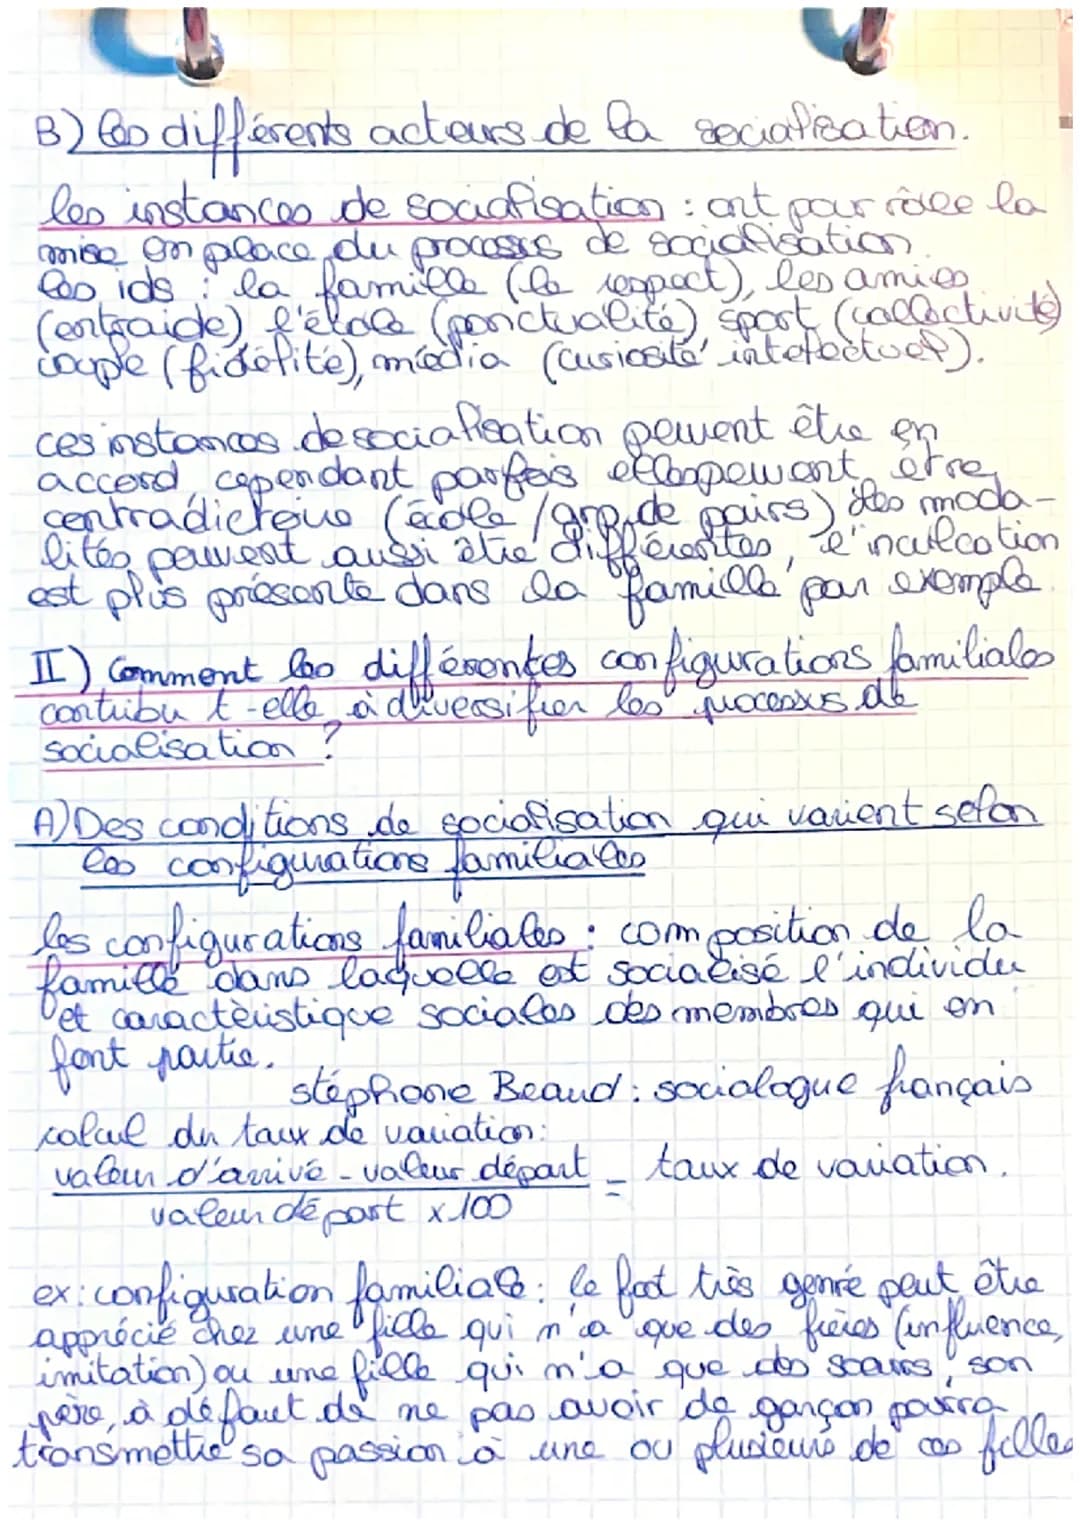 B) les différents acteurs de la socialisation.
les instances de socialisation : ont pour rôle la
mise en place du procesus de socialisation.
les ids : la famille (le respect), les amies
(entraide), l'école (ponctualité), sport (collectivité)
couple (fidélité), média (curiosité intelectuel).
ces instances de socialisation peuvent être en
accord, cependant parfois elles peuvent être
contradictoire (école / grp de pairs) des moda-
lités peuvent aussi être différentes, l'inculcation
est plus présente dans la famille par exemple.
II) Comment les différentes configurations familiales
contribu t-elle à diversifier les processus de
socialisation ?
A) Des conditions de socialisation qui varient selon
les configurations familiales
les configurations familiales : composition de la
famille dans laquelle est socialisé l'individu
et caractèristique sociales des membres qui en
font partie.
stéphane Beaud : sociologue français
calcul du taux de variation :
valeur d'arrivé - valeur départ = taux de variation.
valeur départ x 100
ex : configuration familiale : le foot très genré peut être
apprécié chez une fille qui n'a que des frères (influence,
imitation) ou une fille qui n'a que des soeurs, son
père, à défaut de ne pas avoir de garçon pourra
transmettre sa passion à une ou plusieurs de ces filles